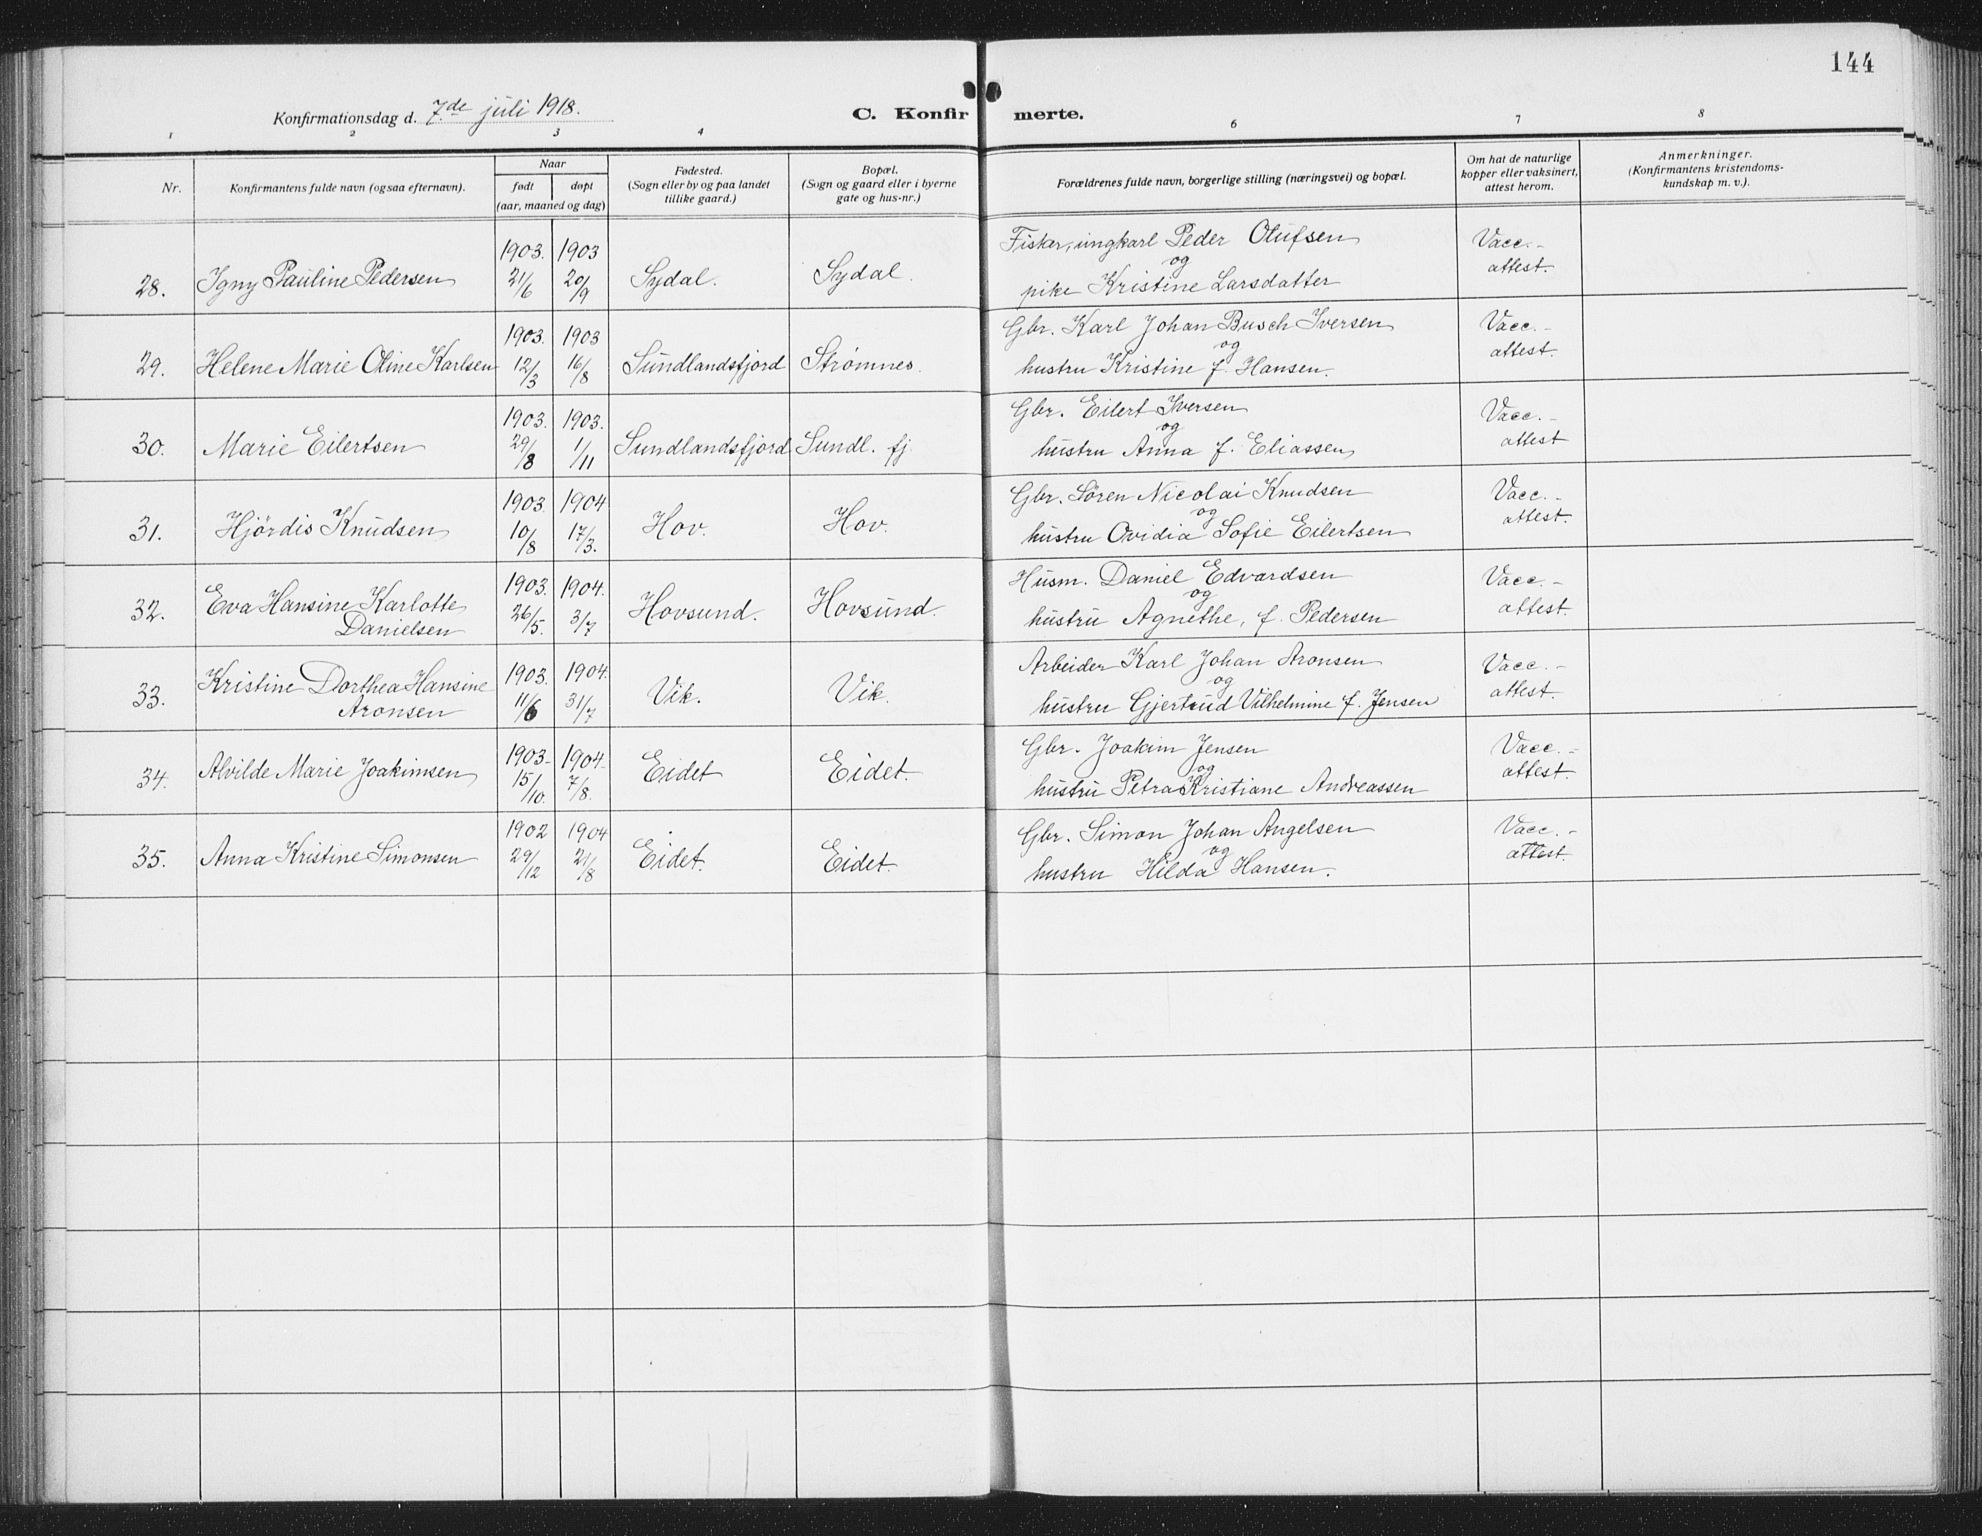 144
Konfirmationsdag d. 7.de juli 1918.
C. Konfirmerte.
1 2 3 4 6 7 8
Nr.
Konfirmantens fulde navn (ogsaa efternavn).
Naar
født døpt
(aar, maaned og dag)
Fødested.
(Sogn eller by og paa landet
tillike gaard.)
Bopæl.
(Sogn og gaard eller i byerne
gate og hus-nr.)
Forældrenes fulde navn, borgerlige stilling (næringsvei) og bopæl.
Om hat de naturlige
kopper eller vaksinert,
attest herom.
Anmerkninger.
(Konfirmantens kristendoms-
kundskap m. v.).
28. Igny Pauline Pedersen 1903. 21/6 1903 20/9 Sydal. Sydal.
Fisker, ungkarl Peder Olufsen
og
pike Kristine Larsdatter
Vacc.-
attest.
29. Helene Marie Oline Karlsen 1903. 12/3 1903 16/8 Sundlandsfjord Strømnes.
Gbr. Karl Johan Busch Iversen
og
hustru Kristine f. Hansen.
Vacc.-
attest.
30. Marie Eilertsen 1903. 29/8 1903. 1/11 Sundlandsfjord Sundl. fj.
Gbr. Eilert Iversen
og
hustru Anna f. Eliassen
Vacc.-
attest
31. Hjördis Knudsen 1903. 10/8 1904 17/3. Hov. Hov.
Gbr. Sören Nicolai Knudsen
og
hustru Ovidia Sofie Eilertsen
Vacc.-
attest.
32. Eva Hansine Karlotte
Danielsen 1903. 26/5. 1904. 3/7 Hovsund. Hovsund.
Husm. Daniel Edvardsen
og
hustru Agnethe, f. Pedersen
Vacc.-
attest.
33. Kristine Dorthea Hansine
Aronsen 1903. 11/6 1904. 31/7 Vik. Vik.
Arbeider Karl Johan Aronsen
og
hustru Gjertrud Vilhelmine f. Jensen
Vacc.-
attest.
34. Alvilde Marie Joakimsen 1903- 15/10. 1904- 7/8. Eidet Eidet.
Gbr. Joakim Jensen
og
hustru Petra Kristiane Andreassen
Vacc.-
attest.
35. Anna Kristine Simonsen 1902 29/12 1904 21/8 Eidet. Eidet.
Gbr. Simon Johan Angelsen
og
hustru Hilda Hansen.
Vacc.-
attest.